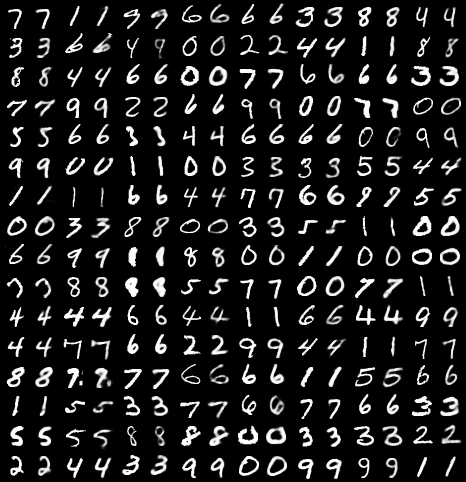 7 7 1 1 9 9 6 6 6 6 3 3 8 8 4 4
3 3 6 6 4 9 0 0 2 2 4 4 1 1 8 8
8 8 4 4 6 6 0 0 7 7 6 6 6 6 3 3
7 7 9 9 2 2 6 6 9 9 0 0 7 7 0 0
5 5 6 6 3 3 4 4 6 6 6 6 0 0 9 9
9 9 0 0 1 1 0 0 3 3 3 3 5 5 4 4
1 1 1 1 6 6 4 4 7 7 6 6 9 9 5 5
0 0 3 3 8 8 0 0 3 3 5 5 1 1 0 0
6 6 9 9 1 1 8 8 0 0 1 1 0 0 0 0
7 7 8 8 8 8 5 5 7 7 0 0 7 7 1 1
4 4 4 4 6 6 4 4 1 1 6 6 4 4 9 9
4 4 7 7 6 6 2 2 9 9 4 4 1 1 7 7
8 8 9 9 7 7 6 6 6 6 1 1 5 5 6 6
1 1 5 5 3 3 7 7 6 6 7 7 6 6 3 3
5 5 5 5 8 8 8 8 0 0 3 3 3 3 2 2
2 2 4 4 3 3 9 9 0 0 9 9 9 9 1 1